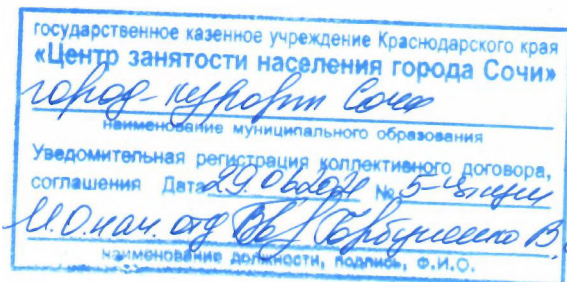 государственное казенное учреждение Краснодарского края
«Центр занятости населения города Сочи»
город-курорт Сочи
наименование муниципального образования
Уведомительная регистрация коллективного договора,
соглашения Дата 29.06.2021 №
И.О. нач. отд Горбуненко В.
наименование должности, подпись, Ф.И.О.